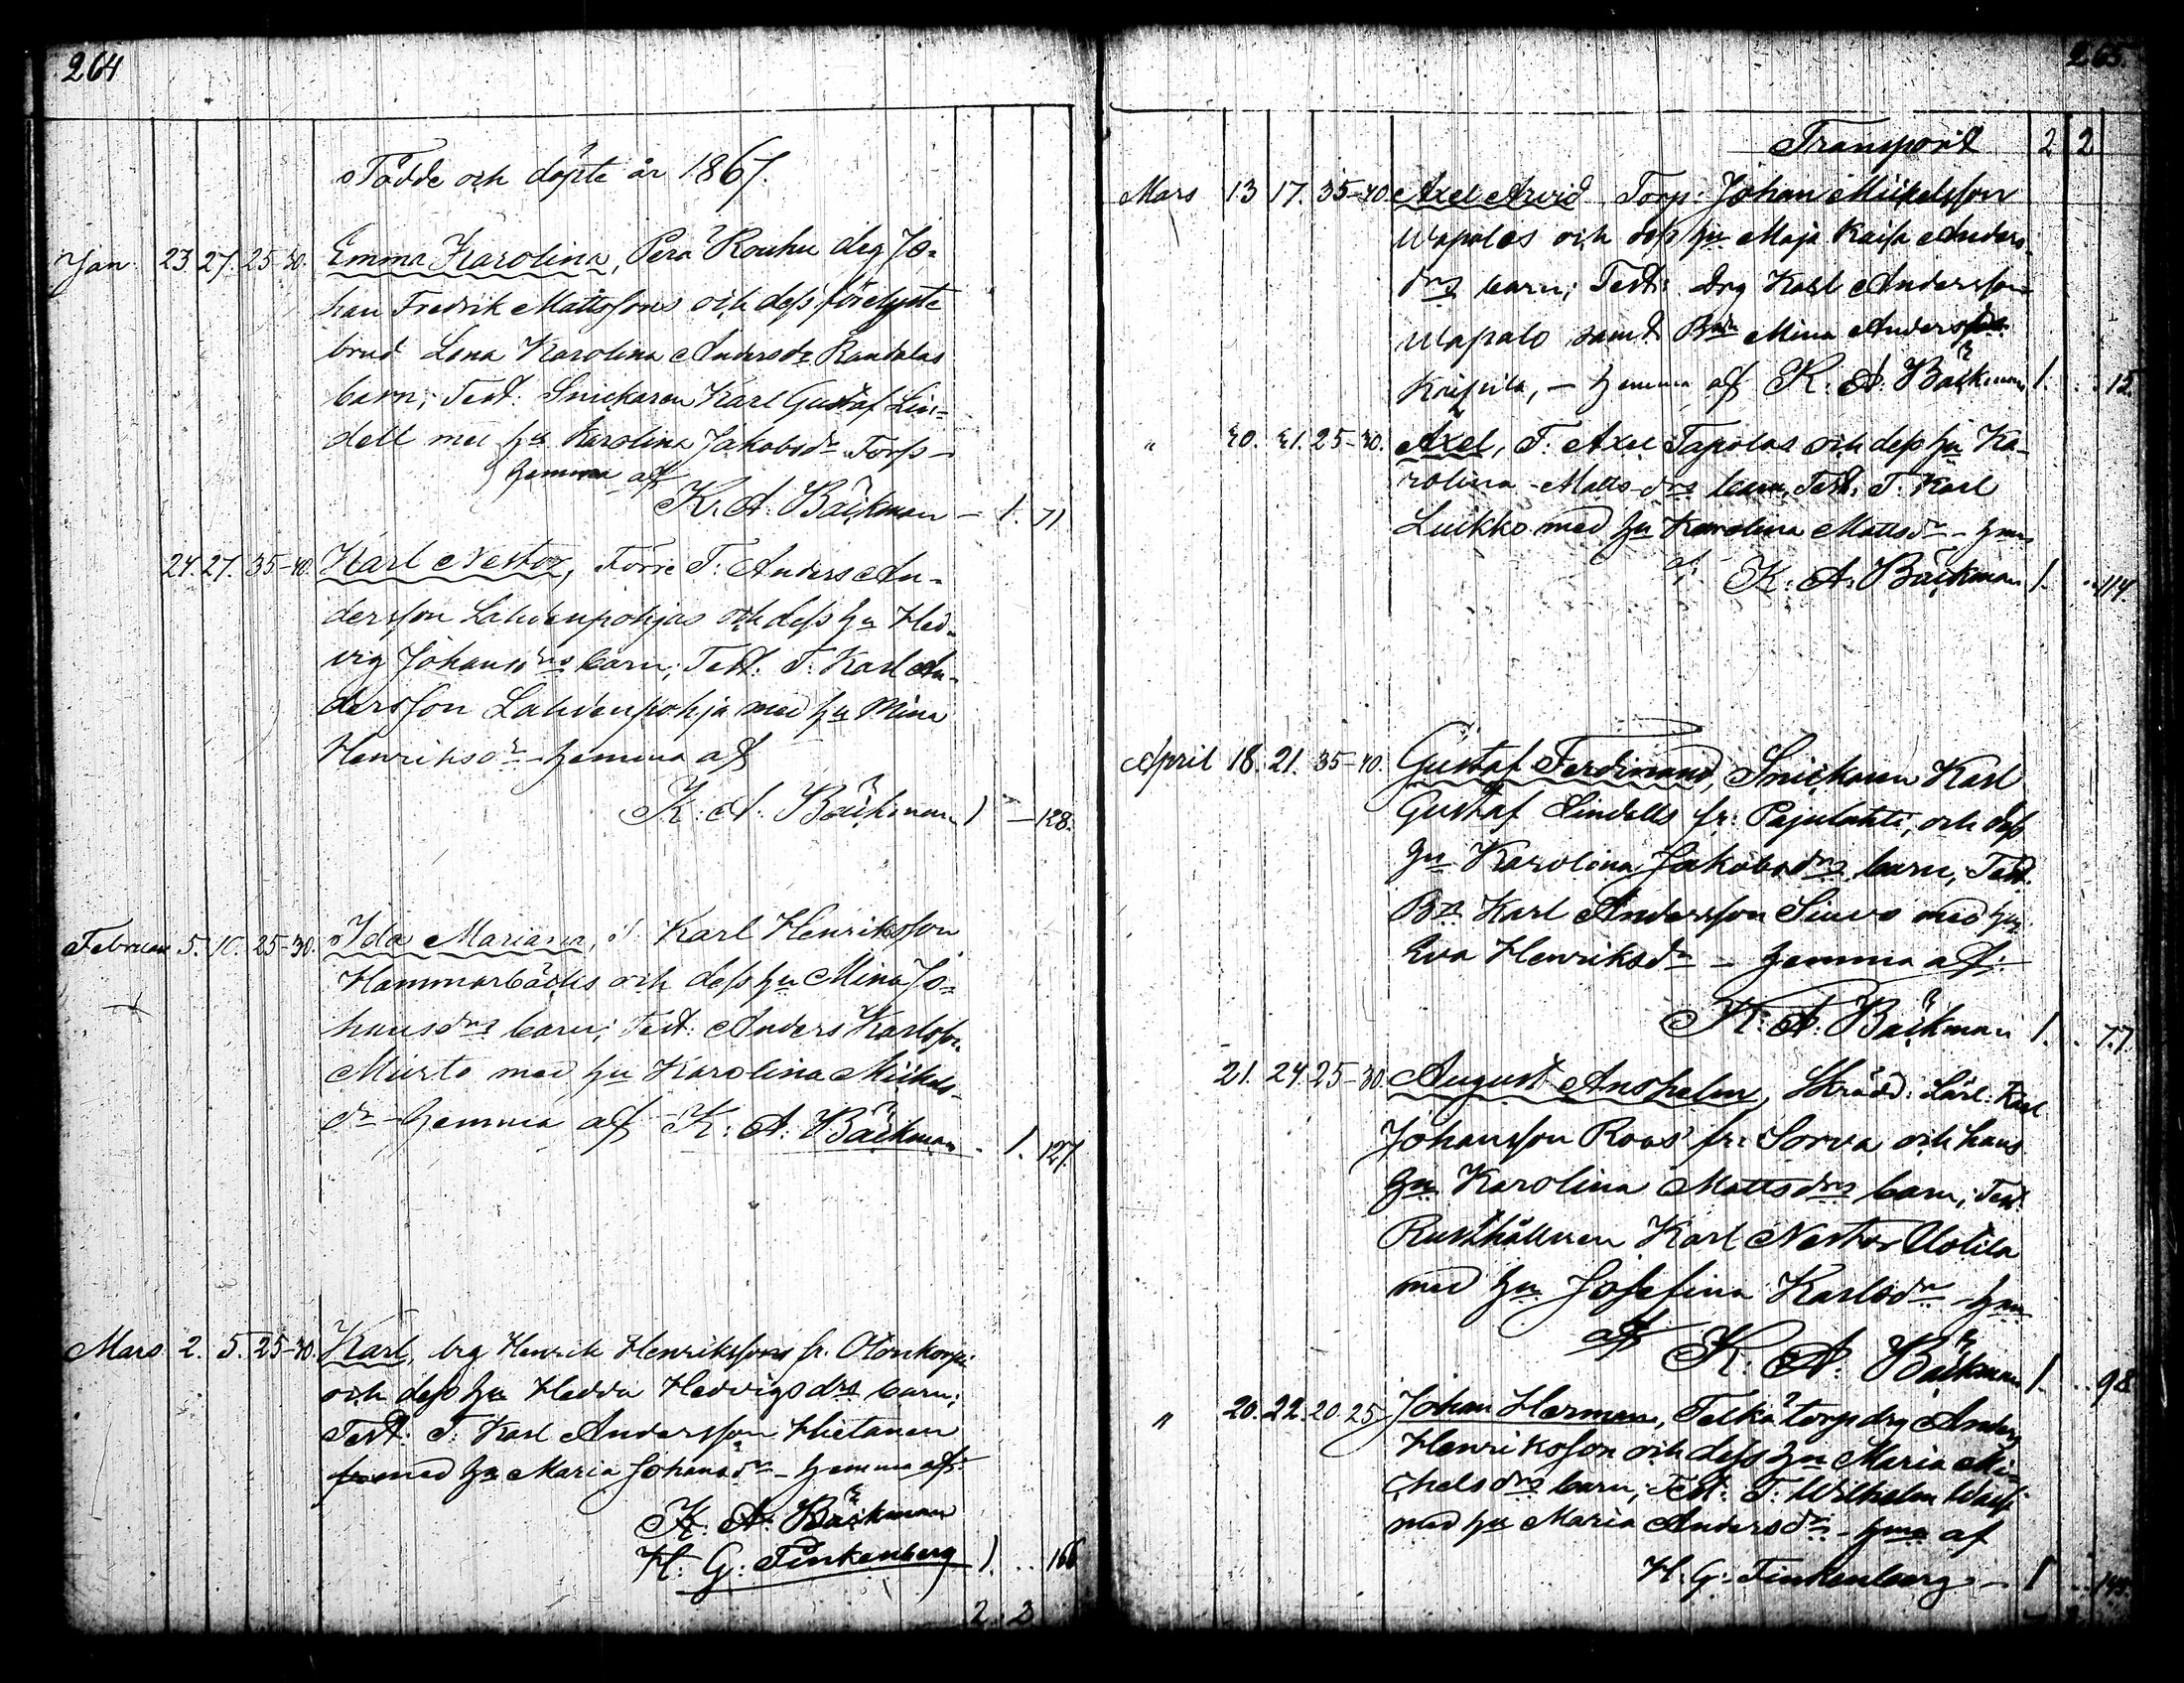 264
Födde och döpte år 1867.
Jan. 23. 27. 25-30. Emma Karolina, Perä Rouhu drg Jo-
han Fredrik Mattssons och dess förelyste
brud Lena Karolina Andersdr Randalas
barn; Test: Snickaren Karl Gustaf Lin-
dell med hu Karolina Jakobsdr Torp –
hemma af
K. A. Bäckman – 1. 71
24. 27. 35-40. Karl Nestor, Förre T: Anders An-
dersson Lahdenpohjas och dess hu Hed-
vig Johansdrs barn; Test: T: Karl An-
dersson Lahdenpohja med hu Mina
Henriksdr – hemma af
K: A: Bäckman 1 – 128.
Februari 5. 10. 25-30. Ida Mariana, Karl Henriksson
Hammarbäcks och dess hu Mina Jo-
hansdrs barn; Test: Anders Karlsson
Murto med hu Karolina Mickels-
dr – hemma af K: A: Bäckman – 1. 127.
Mars 2. 5. 25-30. Karl, drg Henrik Henrikssons fr.
och dess hu Hedda Hedvigsdrs barn;
Test: T: Karl Andersson Hietanen
med hu Maria Johansdr – hemma af:
K: A: Bäckman
H: G: Finkenberg 1. .. 166
2. 2
265
Transport 2 2
Mars 13 17. 35-40. Axel Arvid Torp: Johan Mickelsson
Uapalos och dess hu Maja Kaisa Anders-
drs barn; Test: Drg Karl Andersson
Uapalo samt Mina Andersdr
– hemma af K: A: Bäckman 1. .. 15.
" 20. 21. 25-30. Axel, T: Axel Tapolas och dess hu Ka-
rolina Mattsdrs barn, Test: T: Karl
Luikko med hu Karolina Mattsdr – hma
af: K: A: Bäckman 1. .. 114.
April 18. 21. 35-40. Gustaf Ferdinand, Snickaren Karl
Gustaf Lindells fr: Pajulahti, och dess
hu Karolina Jakobsdrs barn; Test:
Karl Andersson Siuvo med hu
Eva Henriksdr – hemma af:
K: A: Bäckman 1. .. 77.
21. 24. 25-30. August Anshelm, Skrädd: Lärl: Karl
Johansson Roos' fr: Sorva och hans
hu Karolina Mattsdrs barn; Test.
Rusthållaren Karl Nestor Uotila
med hu Josefina Karlsdr – hma
af K: A: Bäckman 1. .. 98
" 20. 22. 20 25 Johan Herman, Telkä torps drg Anders
Henriksson och dess hu Maria Mi-
chelsdrs barn; Test: T: Wilhelm
med hu Maria Andersdr – hma af
H. G. Finkenberg – 1